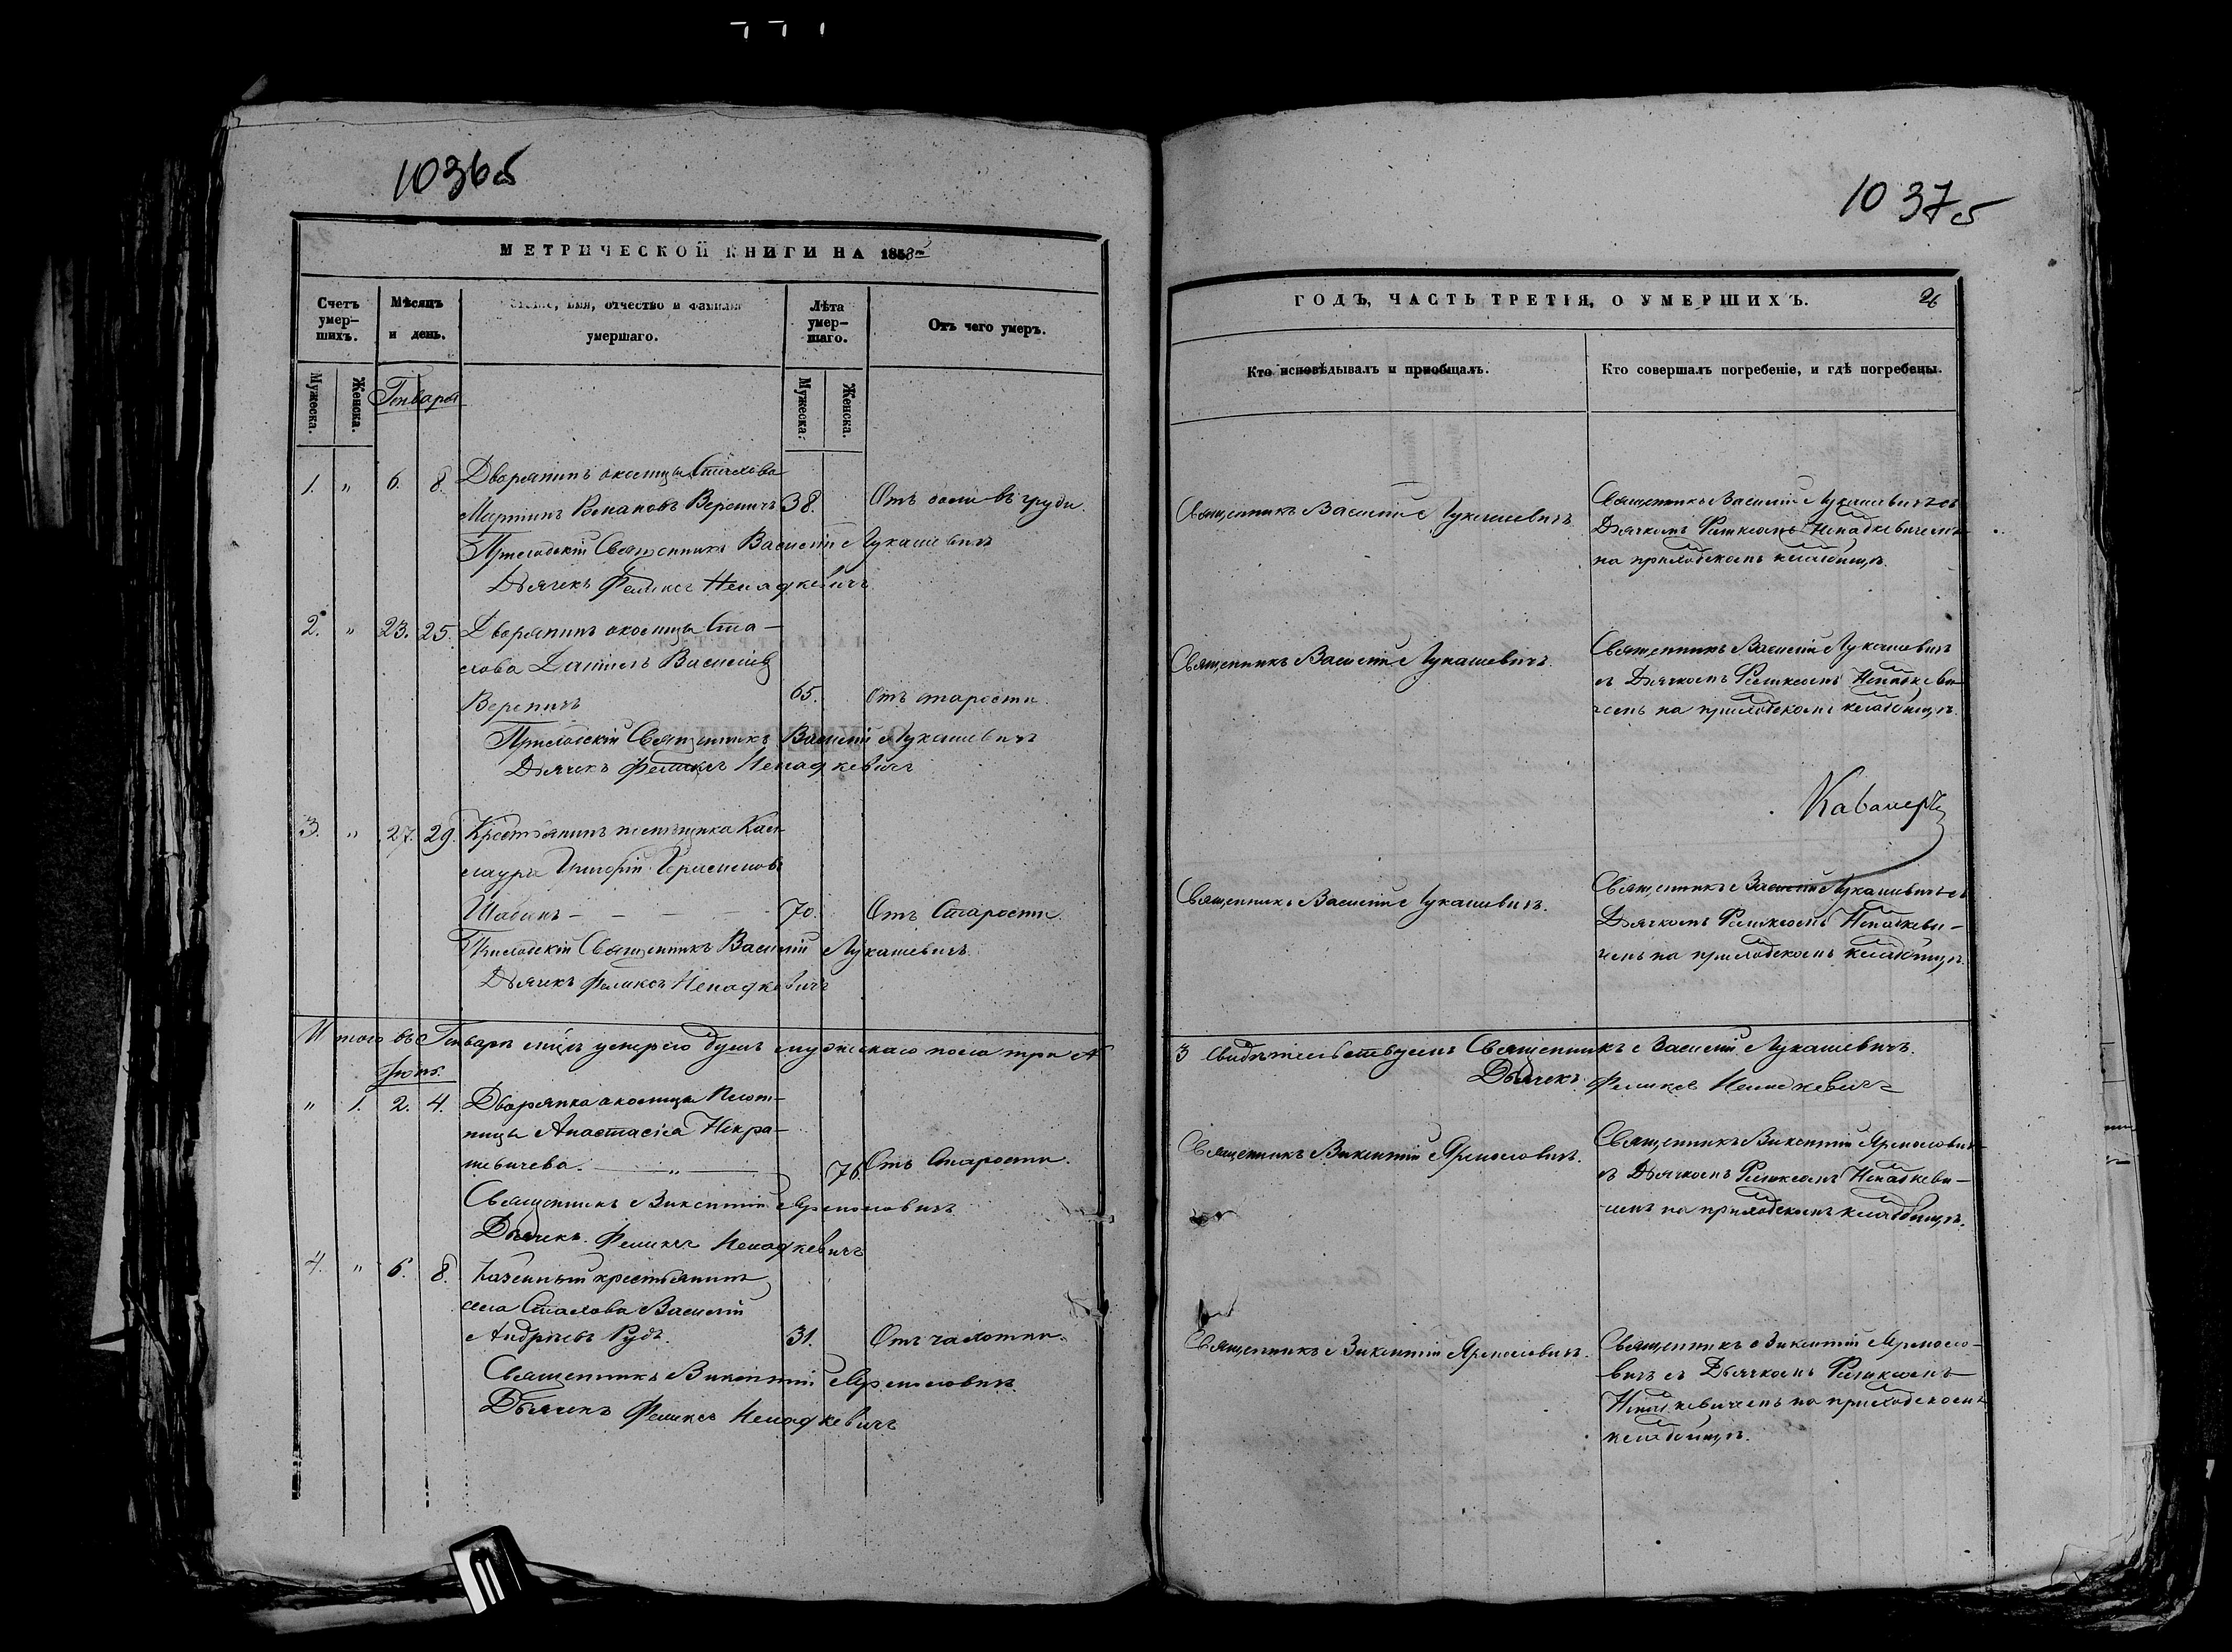 1036об
МЕТРИЧЕСКОЙ КНИГИ НА 1858й
Счетъ умер-шихъ.
Мѣсяцъ и день.
Званіе, имя, отчество и фамилія умершаго.
Лѣта умер-шаго.
Отъ чего умеръ.
Мужеска.
Женска.
Генварь
Мужеска.
Женска.
1. " 6. 8. Дворянинъ околицы Стахова
Мартинъ Романовъ Вереничъ 38. Отъ боли въ груди.
Приходскій Священникъ Василій Лукашевичъ
Дьячекъ Феликсъ Ненадкевичъ
2. " 23. 25. Дворянинъ околицы Ста-
хова Даніилъ Василіевъ
Вереничъ 65. Отъ старости.
Приходскій Священникъ Василій Лукашевичъ
Дьячекъ Феликсъ Ненадкевичъ
3. " 27. 29. Крестьянинъ помѣщика
Григорій Герасимовъ
70. Отъ Старости.
Приходскій Священникъ Василій Лукашевичъ
Дьячекъ Феликсъ Ненадкевичъ
Итого въ Генварѣ мцѣ умерло душъ мужескаго пола три №
Іюнь.
" 1. 2. 4. Дворянка околицы Плот-
ницы Анастасія Некра-
шевичева. " 76. Отъ Старости.
Священникъ Викентій Ярмоловичъ
Дьячекъ Феликсъ Ненадкевичъ
4. " 6. 8. Казенный крестьянинъ
села Стахова Василій
Андреевъ Рудъ. 31. Отъ чахотки.
Священникъ Викентій Ярмоловичъ
Дьячекъ Феликсъ Ненадкевичъ
1037об
ГОДЪ, ЧАСТЬ ТРЕТІЯ, О УМЕРШИХЪ. 26
Кто исповѣдывалъ и приобщалъ.
Кто совершалъ погребеніе, и гдѣ погребены.
Священникъ Василій Лукашевичъ
Священникъ Василій Лукашевичъ съ
Дьячкомъ Феликсомъ Ненадкевичемъ
на приходскомъ кладбищѣ.
Священникъ Василій Лукашевичъ.
Священникъ Василій Лукашевичъ
съ Дьячкомъ Феликсомъ Ненадкеви-
чемъ на приходскомъ кладбищѣ.
Священникъ Василій Лукашевичъ.
Священникъ Василій Лукашевичъ съ
Дьячкомъ Феликсомъ Ненадкеви-
чемъ на приходскомъ кладбищѣ.
3 Свидѣтельствуемъ Священникъ Василій Лукашевичъ.
Дьячекъ Феликсъ Ненадкевичъ
Священникъ Викентій Ярмоловичъ.
Священникъ Викентій Ярмоловичъ
съ Дьячкомъ Феликсомъ Ненадкеви-
чемъ на приходскомъ кладбищѣ.
Священникъ Викентій Ярмоловичъ.
Священникъ Викентій Ярмоло-
вичъ съ Дьячкомъ Феликсомъ
Ненадкевичемъ на приходскомъ
кладбищѣ.